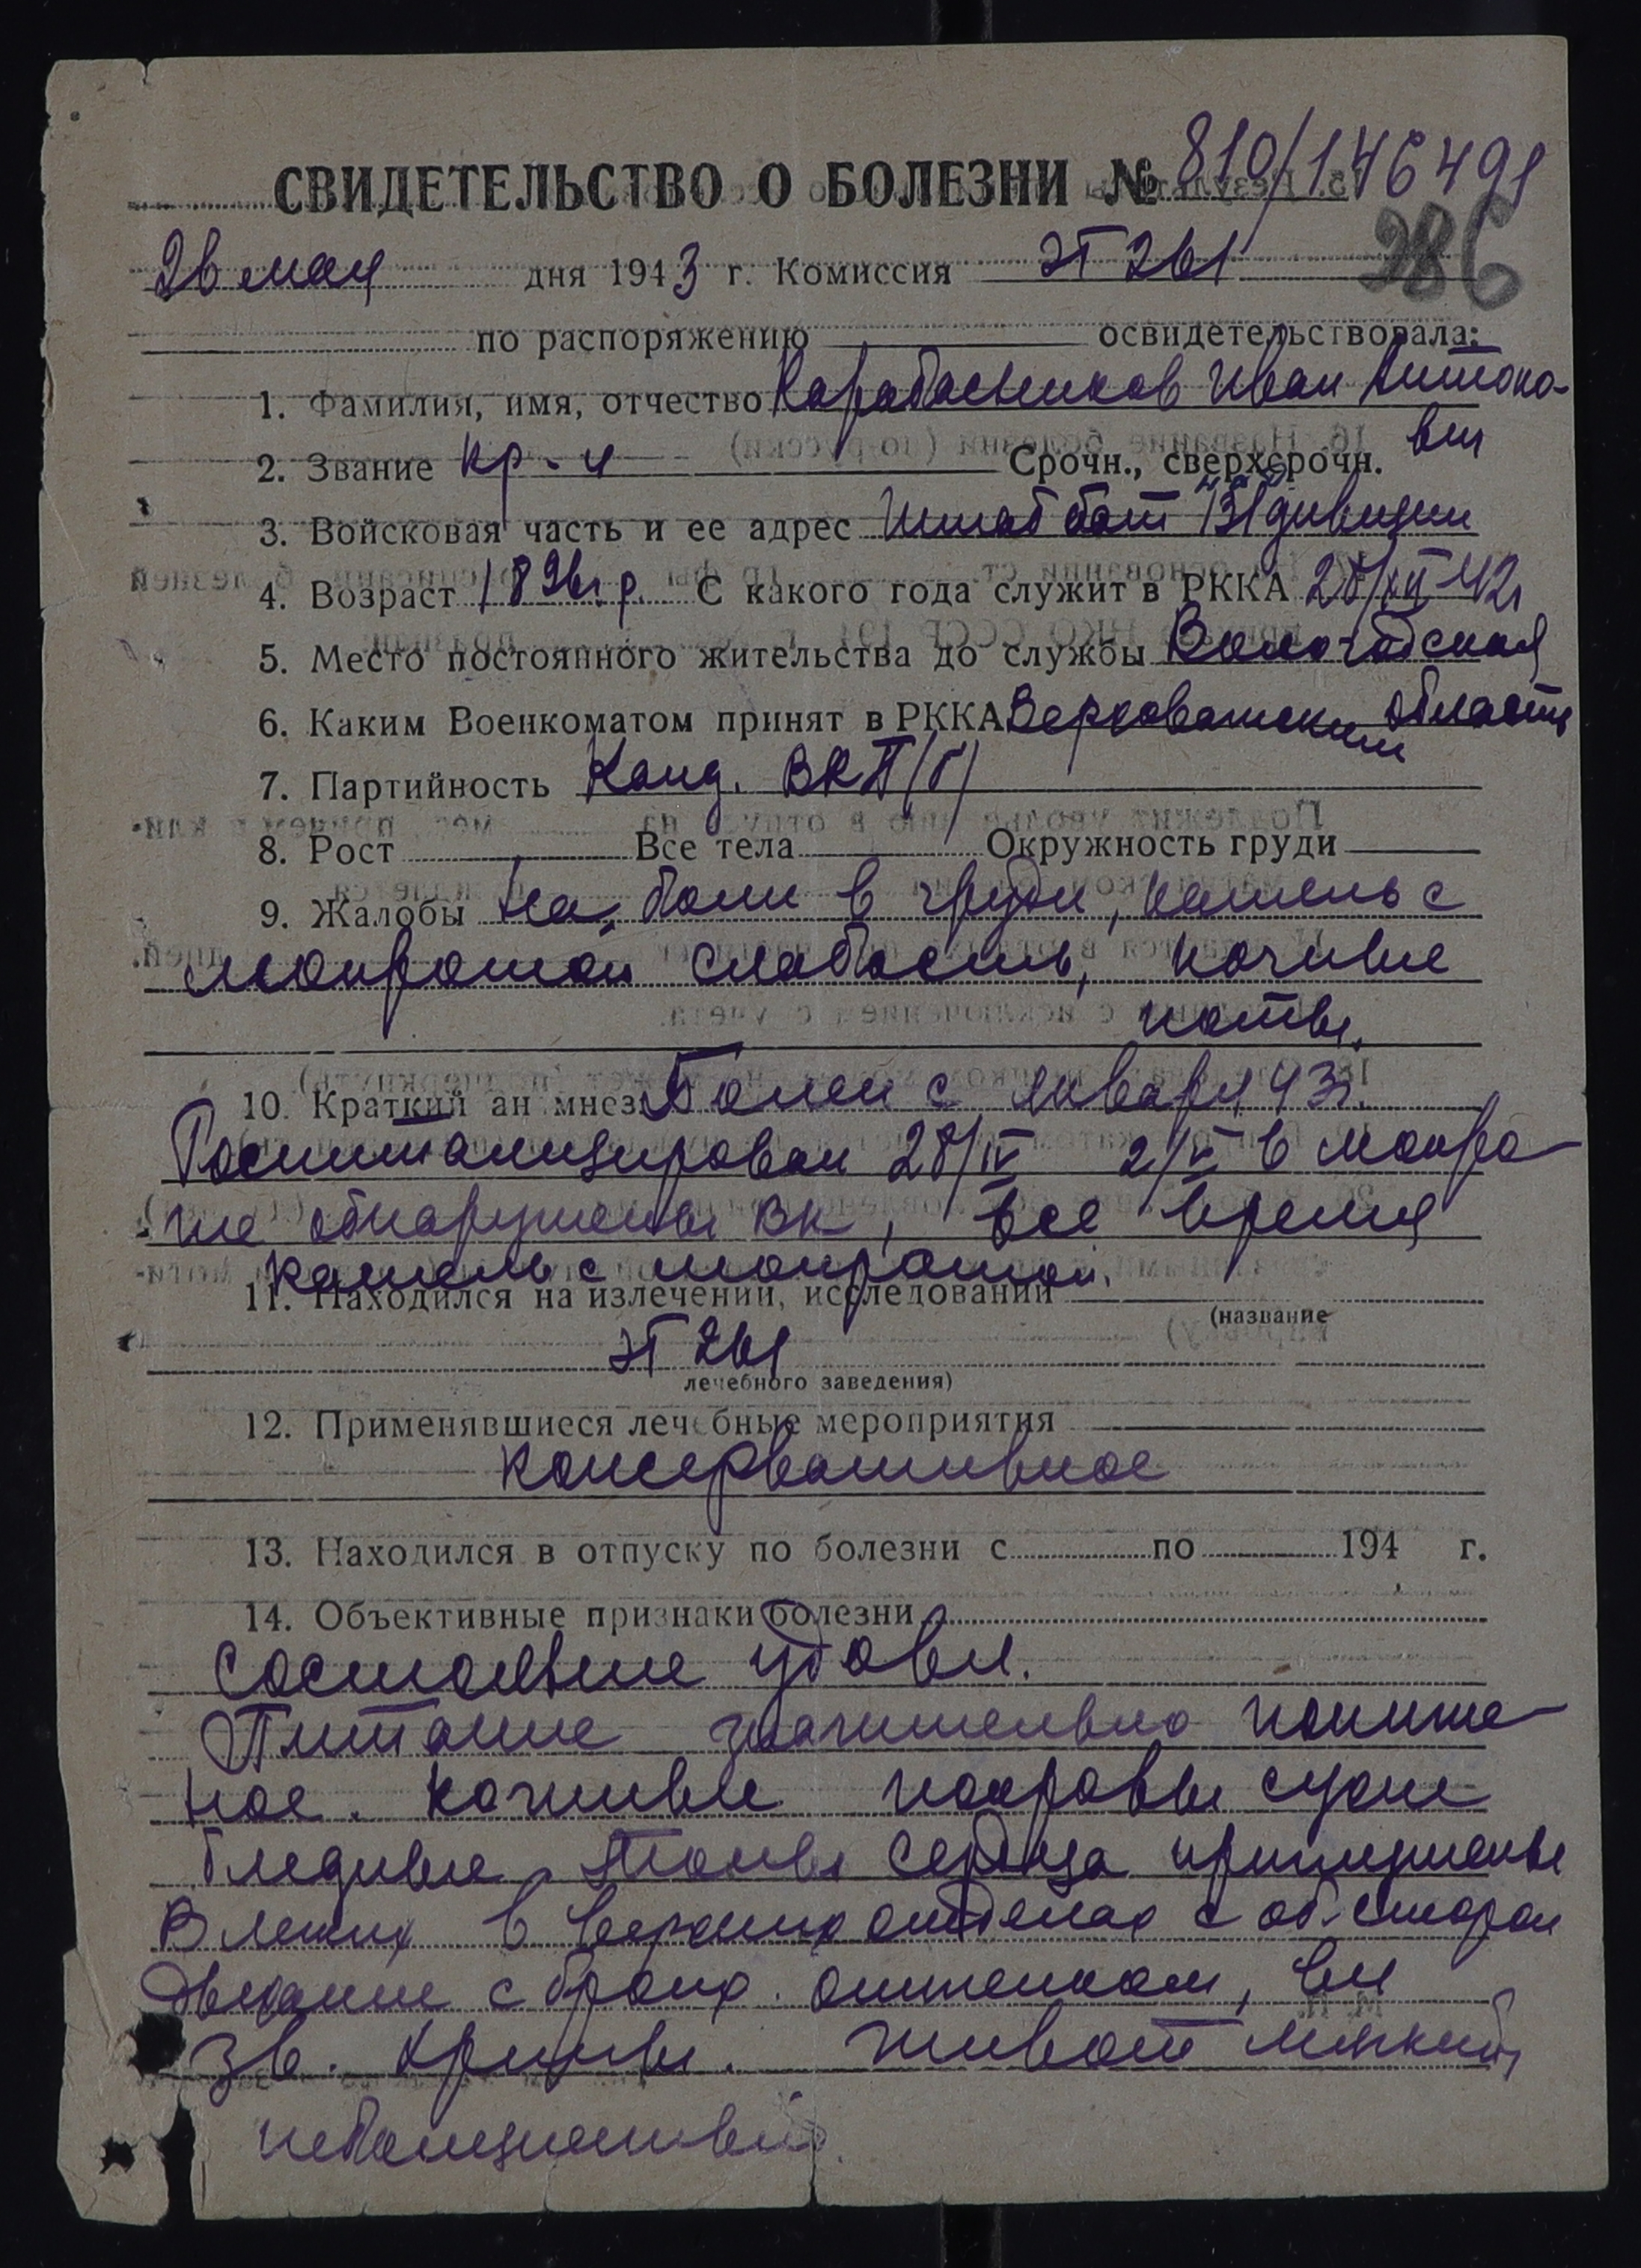 СВИДЕТЕЛЬСТВО О БОЛЕЗНИ № 810/146491
286
26 мая дня 1943 г. Комиссия ЭГ 261
по распоряжению освидетельствовала:
1. Фамилия, имя, отчество Карабасников Иван Антоно-
вич
2. Звание кр-ц Срочн., сверхсрочн.
3. Войсковая часть и ее адрес Штаб бат 131 дивизии
4. Возраст 1896 г.р. С какого года служит в РККА 28/XII 42г
5. Место постоянного жительства до службы Вологодская
области
6. Каким Военкоматом принят в РККА Верховажским
7. Партийность Канд. ВКП/б/
8. Рост Все тела Окружность груди
9. Жалобы На боли в груди, кашель с
мокротой слабость, ночные
поты.
10. Краткий ан мнез Болен с января 43г.
Госпитализирован 28/IV 2/V в мокро-
те обнаружены ВК, все время
кашель с мокротой.
11. Находился на излечении, исследовании
(название
ЭГ 261
лечебного заведения)
12. Применявшиеся лечебные мероприятия
консервативное
13. Находился в отпуску по болезни с по 194 г.
14. Объективные признаки болезни
Состояние удовл.
Питание значительно пониже-
ное. Кожные покровы сухие
бледные. Тоны сердца приглушены
В легких в верхних отделах с об. сторон
дыхание с бронх. оттенком, вл
зв. хрипы. Живот мягкий,
небезболезненный.